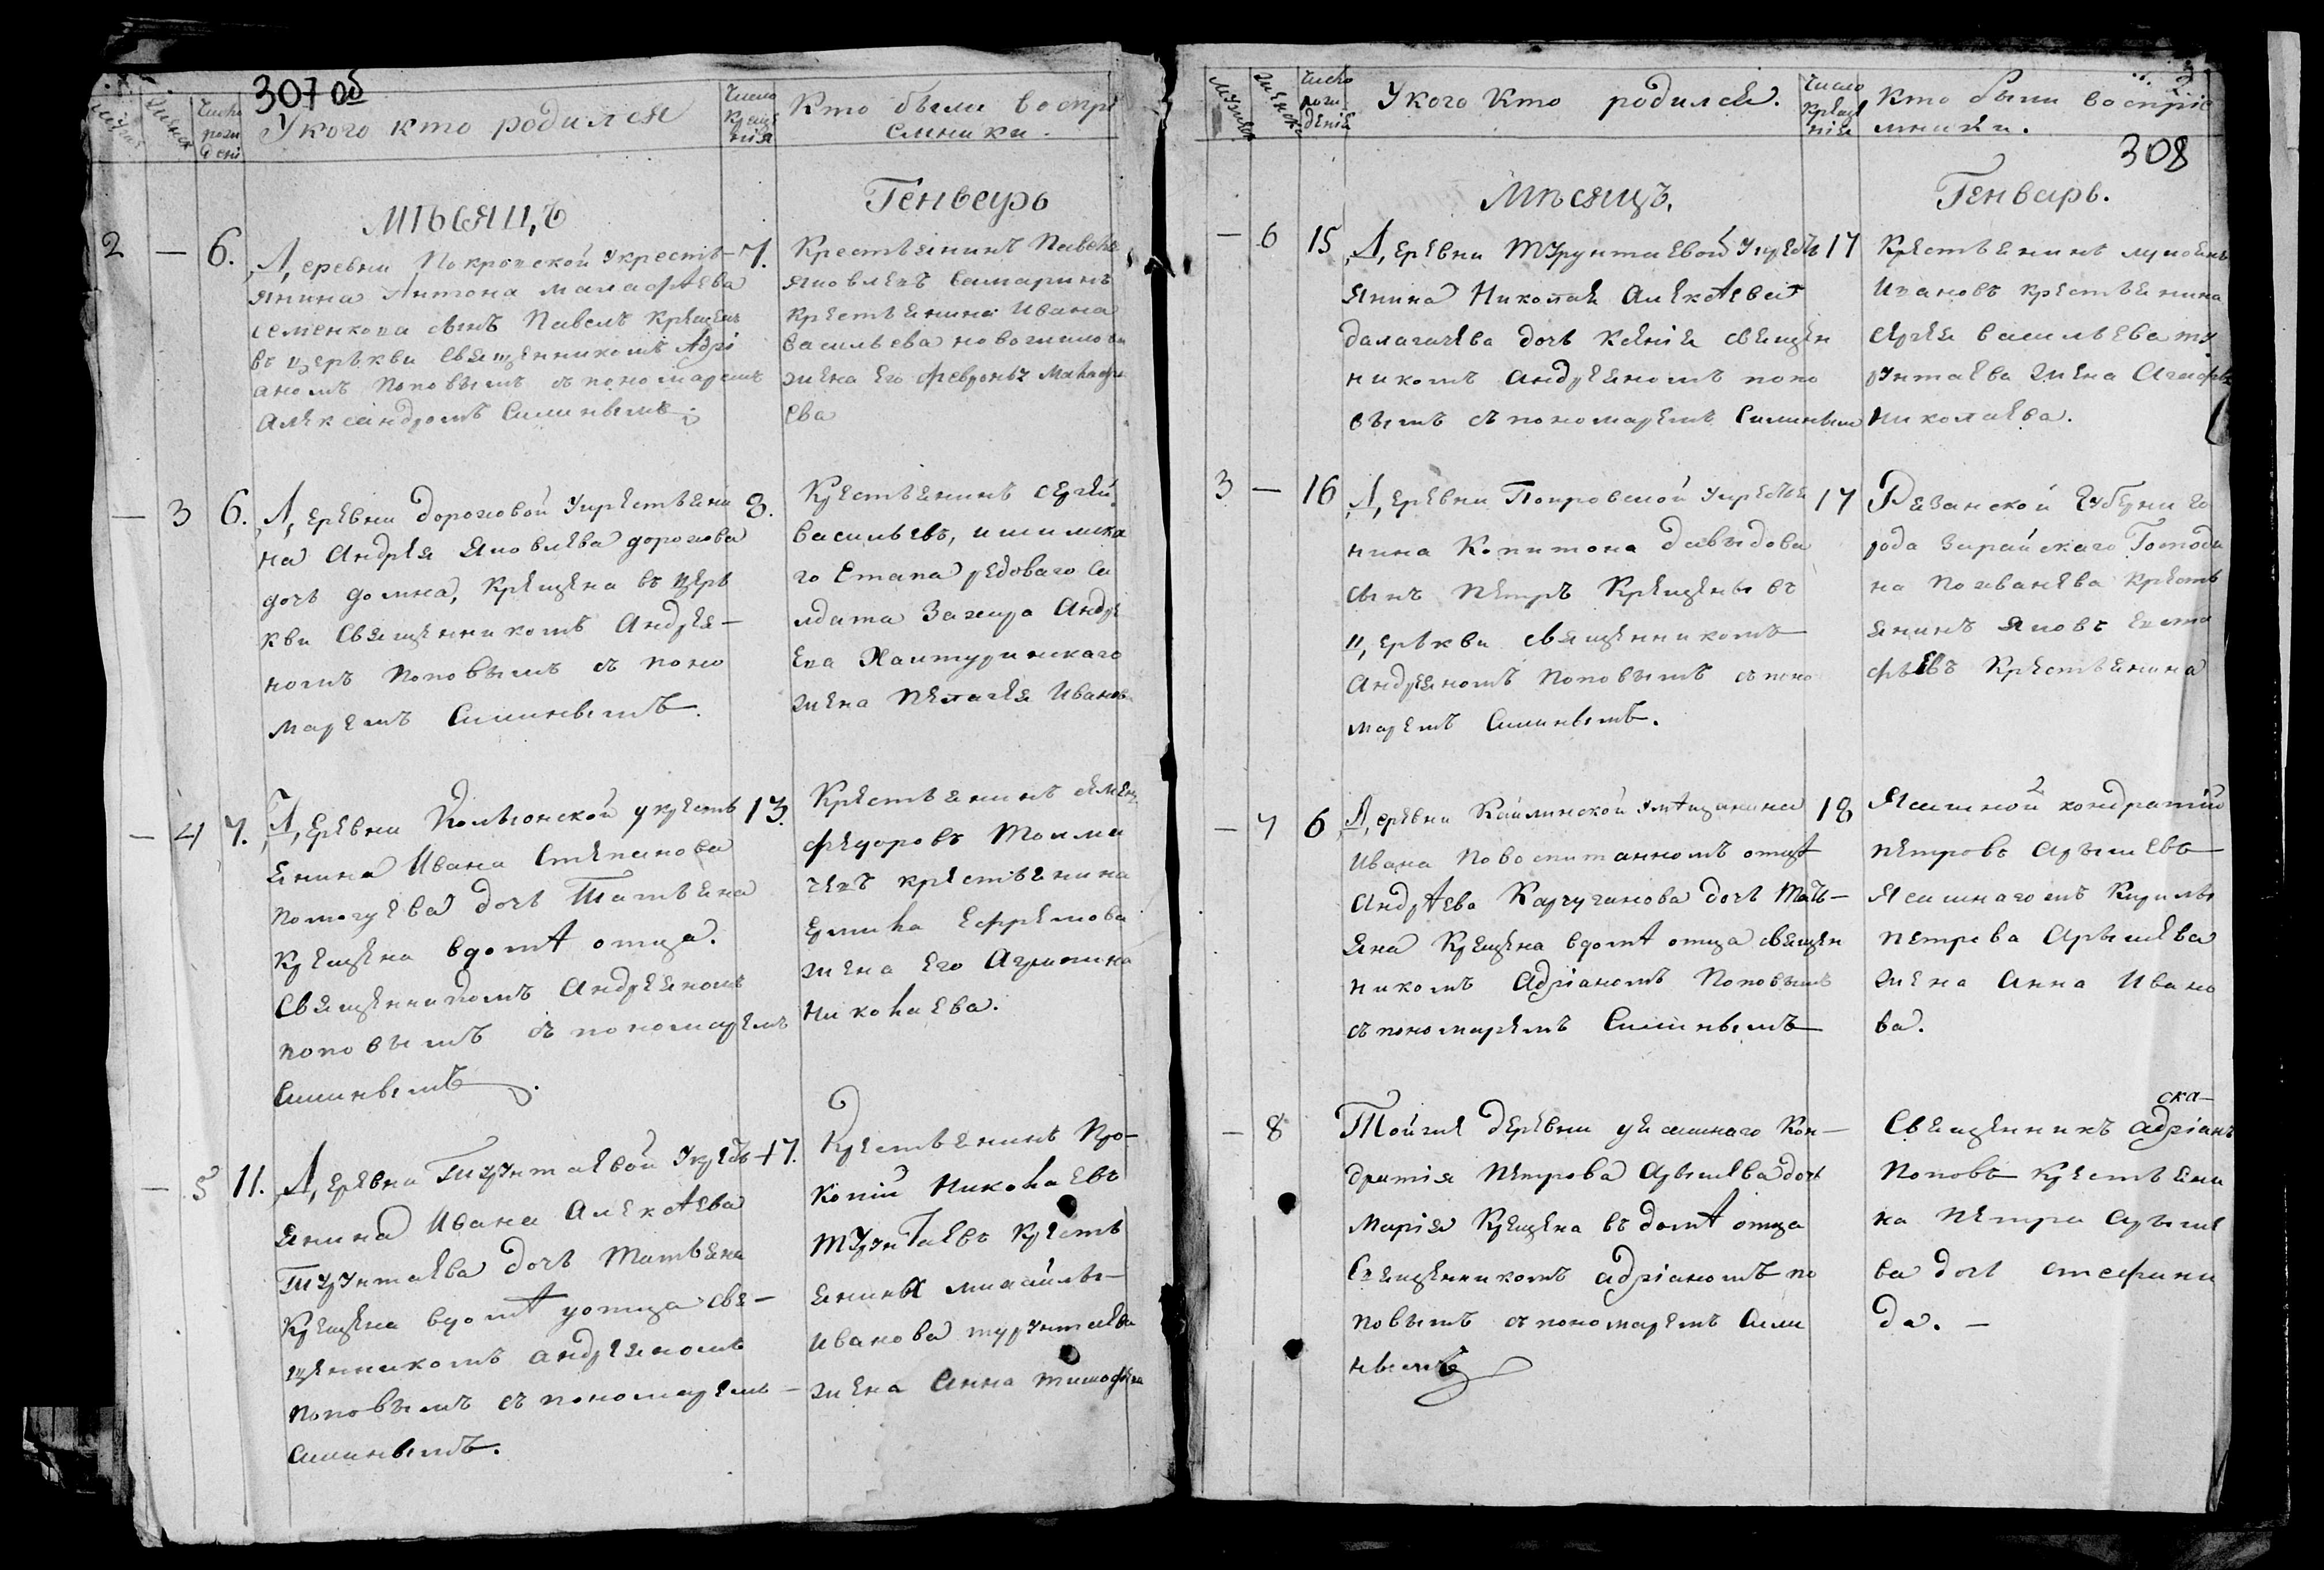 307 об
мужск
женск
Число рожденi
У кого кто родился
Число крещенiя
Кто были воспрi
емники.
Мѣсяцъ
Генварь
2 — 6.
Деревни Покровской укресть
янина Антона малафѣева
семенкова сынъ Павелъ крещенъ
въ церькви священникомъ Адрi
аномъ Поповымъ съ пономаремъ
Александромъ Силинымъ.
7.
Крестьянинъ Павелъ
яковлевъ Самаринъ
крестьянина Ивана
васильева
жена его февронья
ева
— 3 6.
Деревни дороховой укрестьяни
на Андрея яковлева дорохова
дочь домна, крещена въ церь
кви священникомъ Андрея—
номъ поповымъ съ поно
маремъ Силинымъ.
8.
Крестьянинъ сергей
васильевъ, ишимска
го Етапа редоваго са
лдата Захара Андре
ева
жена пелагея Иванов
— 4 7.
Деревни укресть
янина Ивана Степанова
дочь Татьяна
крещена вдомѣ отца.
Священникомъ Андреяномъ
поповымъ съ пономаремъ
Силинымъ.
13.
Крестьянинъ семенъ
федоровъ Толма
чевъ крестьянина
ермила Ефремова
жена его Агрипина
николаева.
— 5 11.
Деревни Турунтаевой укресть
янина Ивана Алексѣева
Турунтаева дочь Татьяна
Крещена вдомѣ уотца свя—
щенникомъ андреяномъ
поповымъ съ пономаремъ —
Силинымъ.
17.
Крестьянинъ Про—
копiй Николаевъ
Турунтаевъ кресть
янина михайлы—
Иванова турунтаева
жена Анна тимофеева
мужеск
женск
Число рожденiя
У кого Кто родился.
Число крещенiя
Кто были воспрiе
мники.
308
Мѣсяцъ,
Генварь.
— 6 15
Деревни Турунтаевой укресть
янина Николая Алексѣева
далагачева дочь Ксенiя священ
никомъ андреяномъ попо
вымъ съ пономаремъ Силиным
17
Крестьянинъ
Ивановъ крестьянина
сергея васильева ту
рунтаева жена Агафья
николаева.
3 — 16
Деревни Покровской укрестья
нина Копитона давыдова
сынъ Петръ Крещены въ
церькви священникомъ
Андреяномъ Поповымъ съ поно
маремъ Силинымъ.
17
Резанской губерни го
рода Зарайскаго Господи
на кресть
янинъ яковъ Евста
фьевъ Крестьянина
— 7 6
Деревни Кайлинской умѣщанина
Ивана по воспитанномъ отцѣ
андрѣева Карчуганова дочь Тать—
яна Крещена вдомѣ отца священ
никомъ Адрiаномъ Поповымъ
съ пономаремъ Силинымъ
18
Ясашной кондратiй
петровъ Арышевъ
Ясашнагомъ Кирилы
петрова Арышева
жена Анна Ивано
ва.
— 8
Той же деревни у ясашнаго Кон—
дратiя Петрова Арышева дочь
марiя Крещена въ домѣ отца
Священникомъ адрiаномъ по
повымъ съ пономаремъ Сили
нымъ
ска—
Священникъ адрiанъ
Поповъ Крестьяни
на петра Арыше
ва дочь стефани
да. —